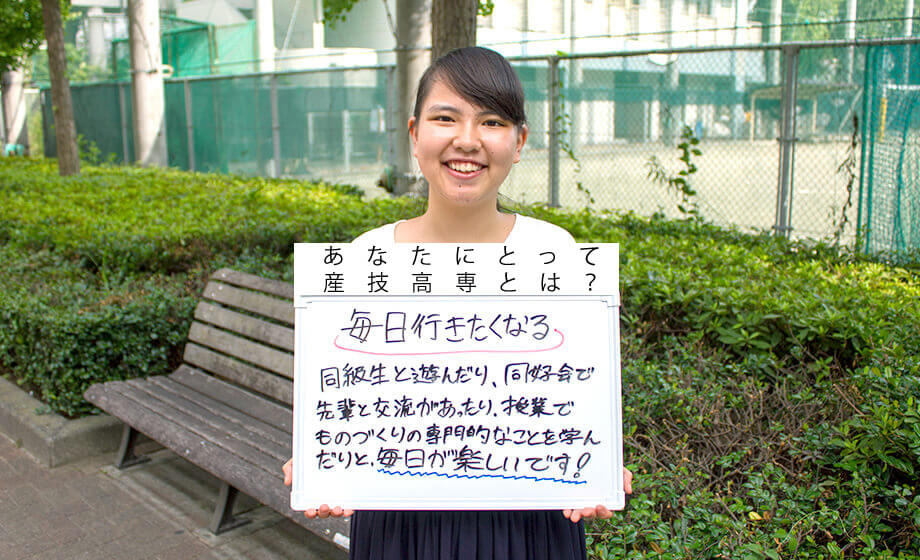 あなたにとって
産技高専とは？
毎日行きたくなる
同級生と遊んだり、同好会で
先輩と交流があったり、授業で
ものづくりの専門的なことを学ん
だりと、毎日が楽しいです！